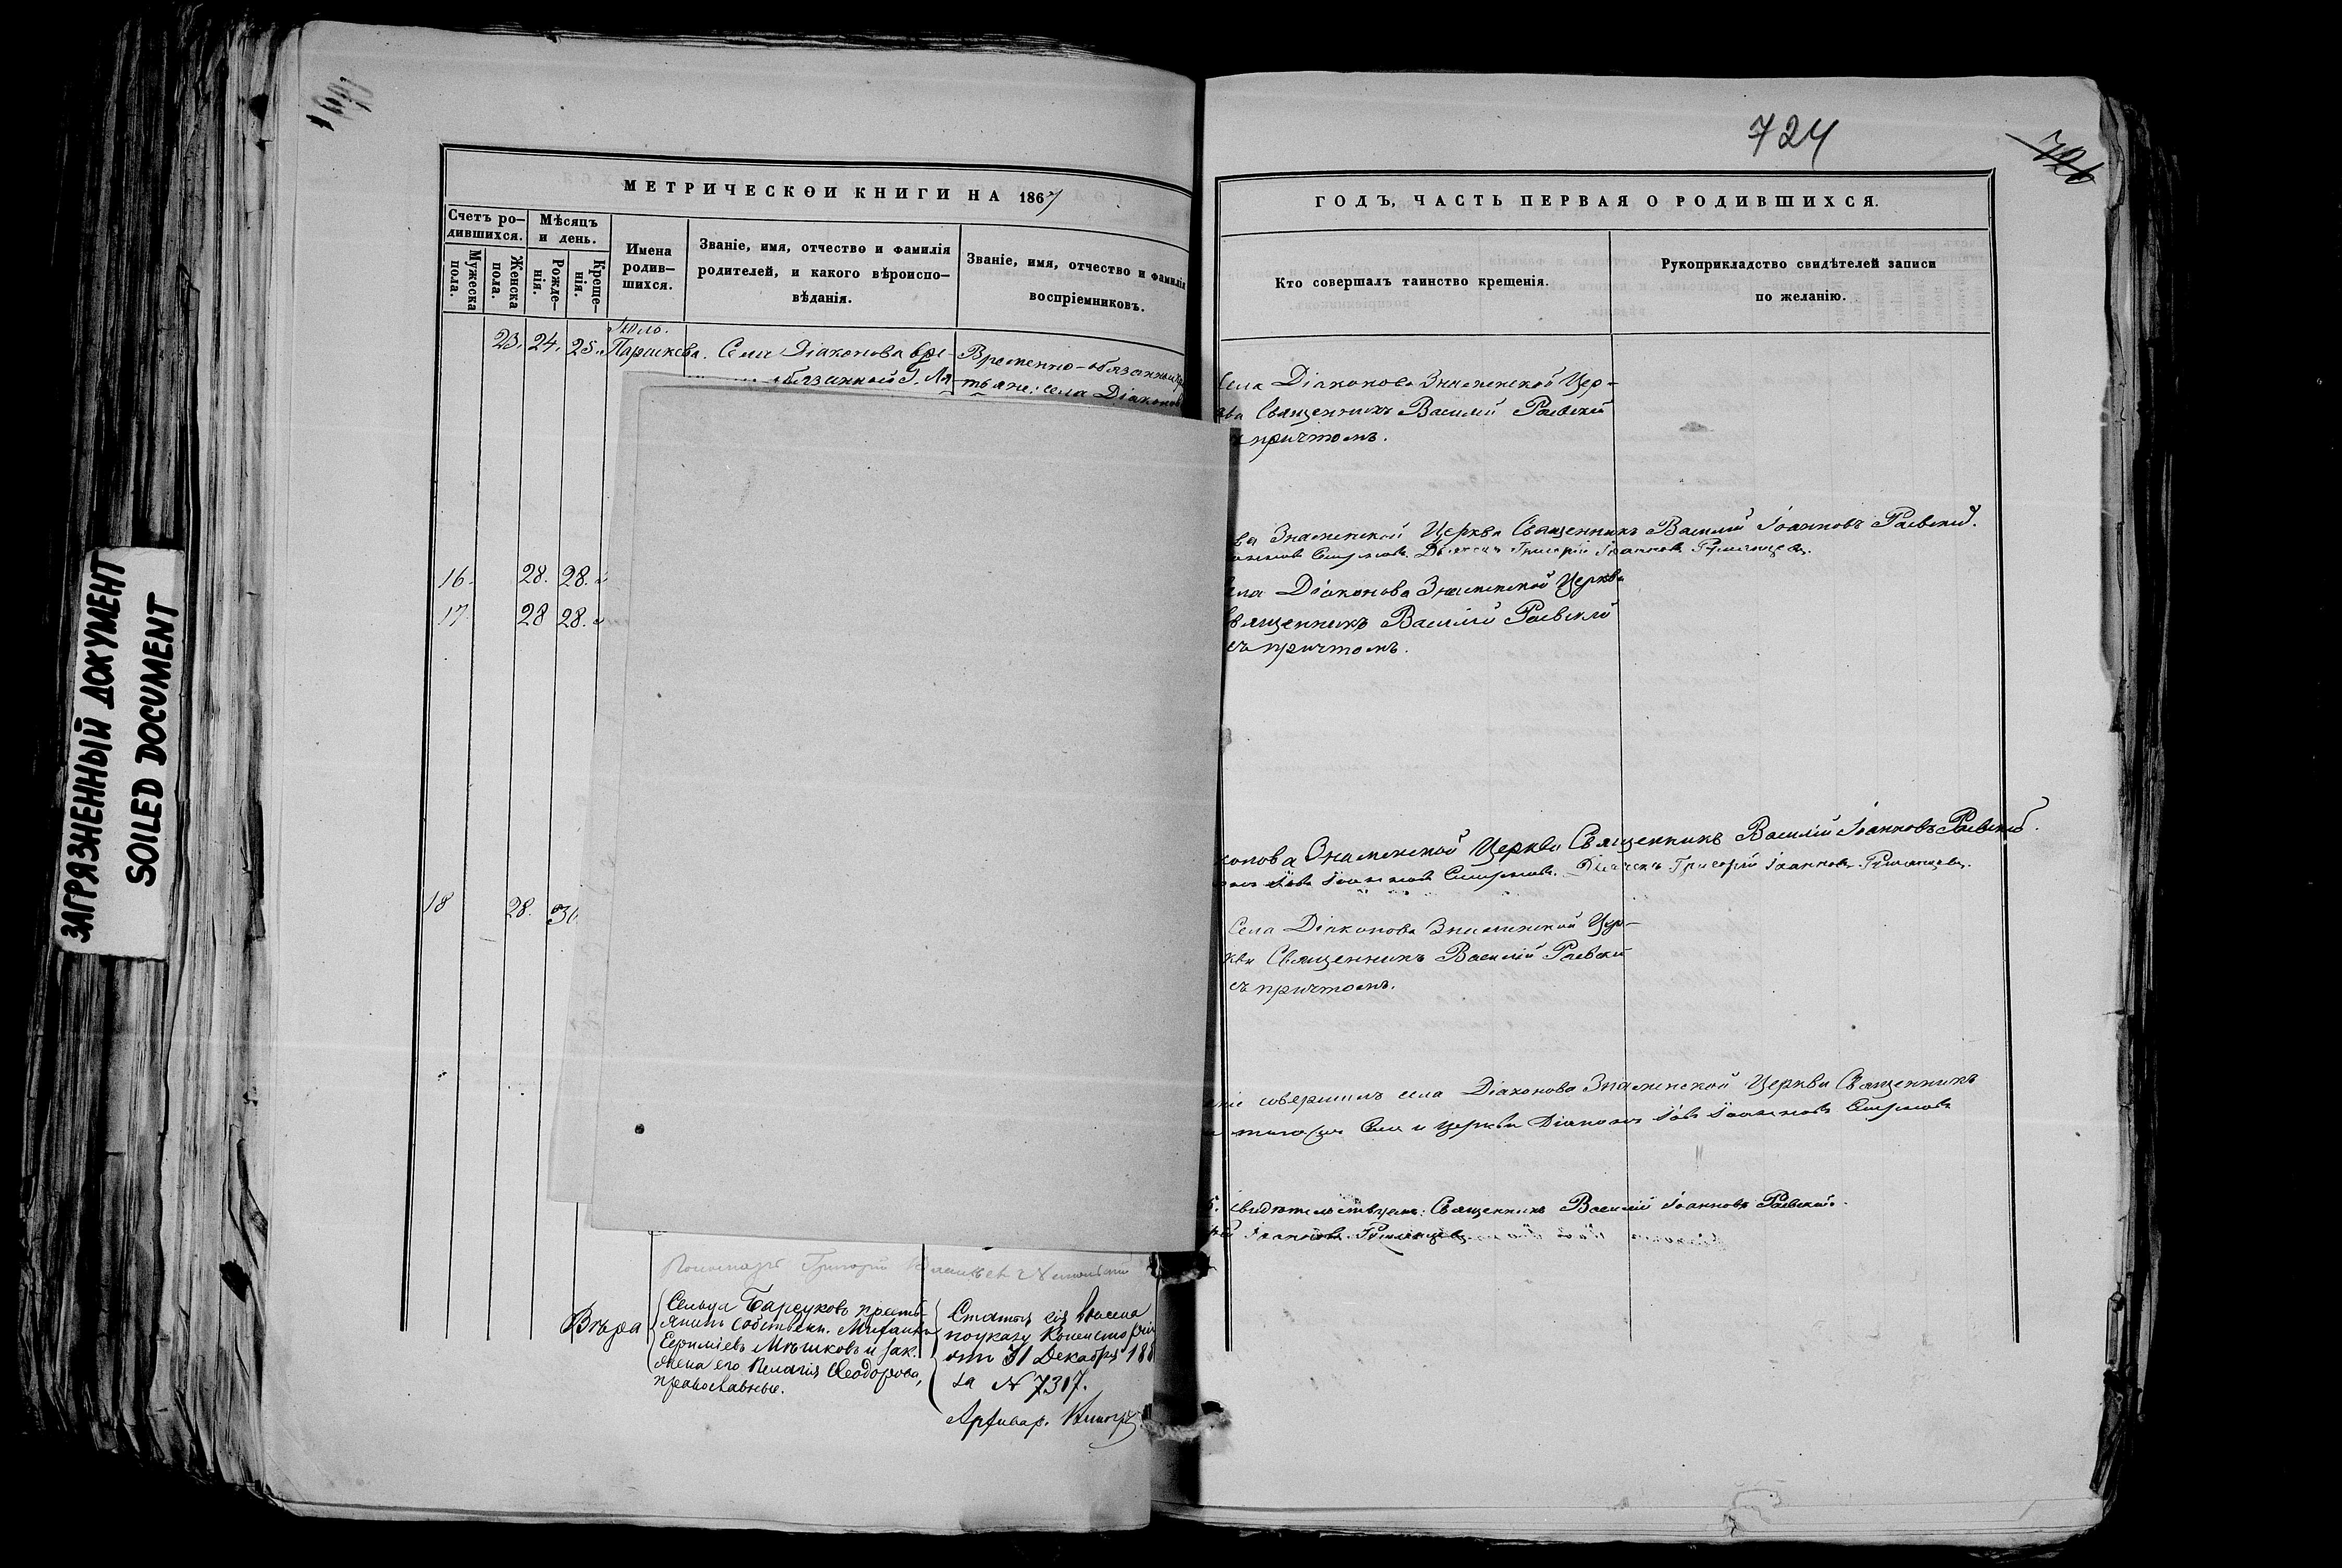 724
726
ЗАГРЯЗНЕННЫЙ ДОКУМЕНТ
SOILED DOCUMENT
МЕТРИЧЕСКОЙ КНИГИ НА 1867
Счетъ ро-
дившихся.
Мужеска
пола.
Женска
пола.
Мѣсяцъ
и день.
Рожде-
нія.
Креще-
нія.
Имена
родив-
шихся.
Званіе, имя, отчество и фамилія
родителей, и какого вѣроиспо-
вѣданія.
Званіе, имя, отчество и фамилія
воспріемниковъ.
Іюль.
23. 24. 25. Параскева. Села Діаконова вре-
обязанной Г. Ля
Временно-обязанные
тьяне: села Діаконов
16. 28. 28.
17. 28 28.
18 28. 31.
Пономарь Григорій
Вѣра
Сельца Барсуковъ кресть-
янинъ собствен. Михаилъ
Ефиміевъ Мѣшковъ и зак.
жена его Пелагія Ѳеодорова,
православные.
Статья сія внесена
по указу Консисторіи
отъ 31 Декабря 188
за № 7317.
Архивар.
ГОДЪ, ЧАСТЬ ПЕРВАЯ О РОДИВШИХСЯ.
Кто совершалъ таинство крещенія.
Рукоприкладство свидѣтелей записи
по желанію.
Села Діаконова Знаменской Цер-
Священникъ Василій Раевскій
причтомъ.
ва Знаменской Церкви Священникъ Василій Іоанновъ Раевскій.
Смирновъ. Дьячекъ Григорій Іоанновъ Румянцевъ.
ела Діаконова Знаменской Церкви
Священникъ Василій Раевскій
съ причтомъ.
конова Знаменской Церкви Священникъ Василій Іоанновъ Раевскій.
Іовъ Іоанновъ Смирновъ. Дьячекъ Григорій Іоанновъ Румянцевъ.
Села Діаконова Знаменской Цер-
кви Священникъ Василій Раевскій
съ причтомъ.
совершилъ села Діаконова Знаменской Церкви Священникъ
села и церкви Діаконъ Іовъ Іоанновъ Смирновъ
свидѣтельствуемъ: Священникъ Василій Іоанновъ Раевскій.
Іоанновъ Румянцевъ